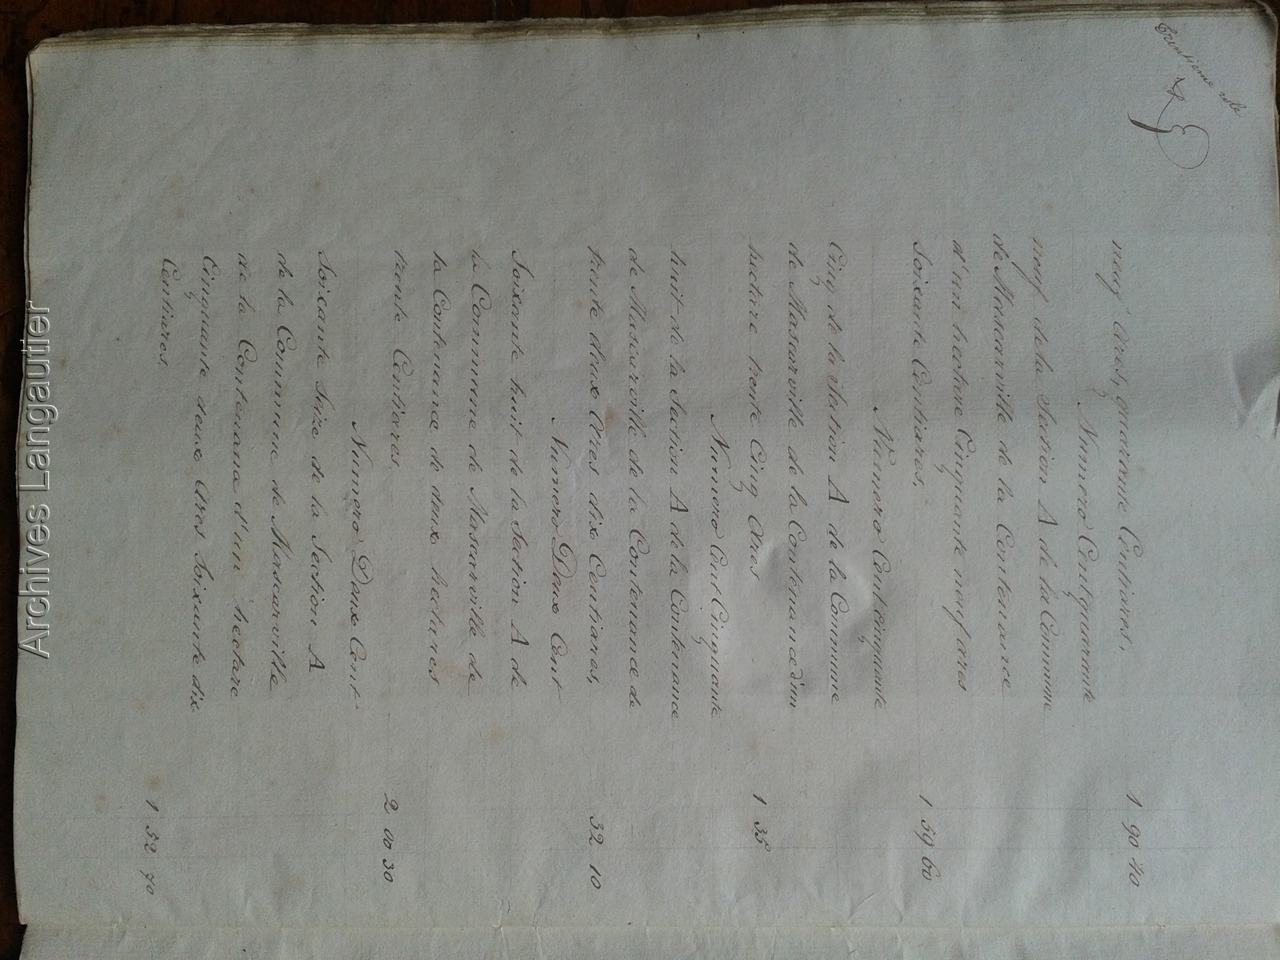 Trentieme role
neuf ares, quarante Centiares,
1 90 40
Numero Centquarante
neuf de la Section A de la Commune
de Mascarville de la Contenance
d'un hectare Cinquante neuf ares
Soixante Centiares,
1 59 60
Numero Centcinquante
Cinq de la Section A de la Commune
de Mascarville de la Contenance d'un
hectare trente Cinq Ares
1 35
Numero Cent Cinquante
huit de la Section A de la Contenance
de Mascarville de la Contenance de
trente deux Ares dix Centiares,
32 10
Numero Deux Cent
Soixante huit de la Section A de
la Commune de Mascarville de
la Contenance de deux hectares
trente Centiares
2 00 30
Numero Deux Cent
Soixante Seize de la Section A
de la Commune de Mascarville
de la Contenance d'un hectare
Cinquante deux Ares Soixante dix
Centiares.
1 52 70
Archives Langautier